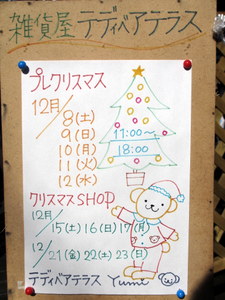 雑貨屋 テディベアテラス
プレクリスマス
12月
8(土)
9(日) 11:00〜
10(月) 18:00
11(火)
12(水)
クリスマスSHOP
12月
15(土)16(日)17(月)
12/21(金)22(土)23(日)
テディベアテラス Yumi